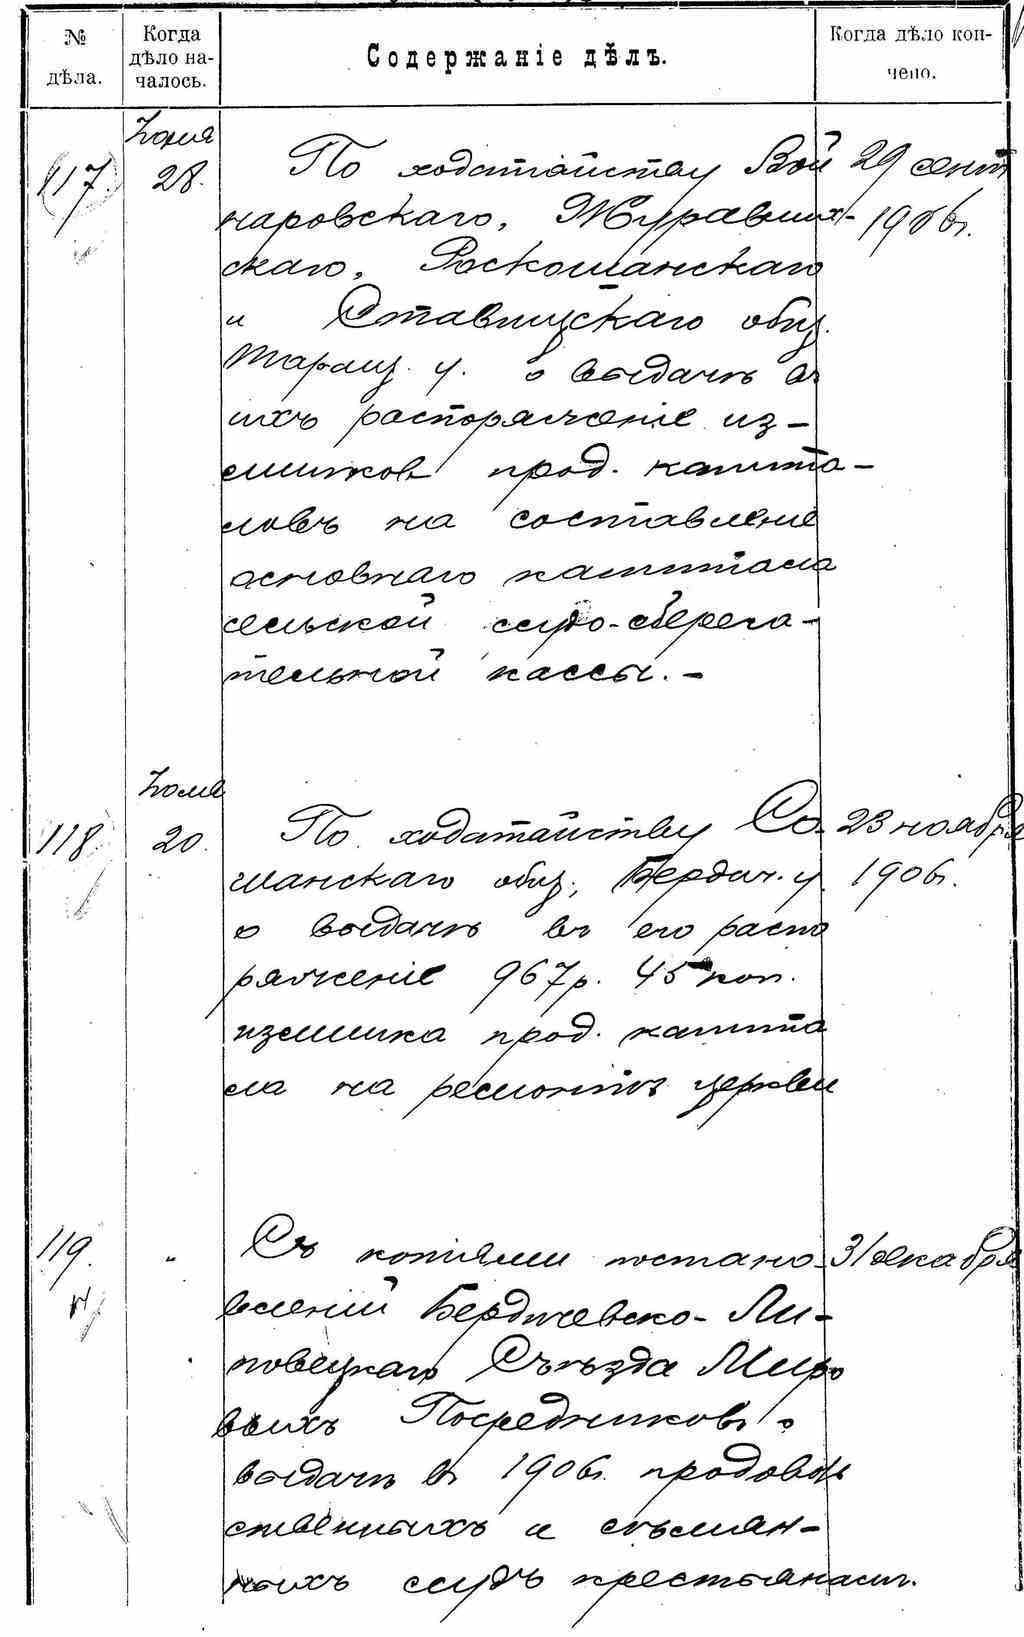 № дѣла.
Когда дѣло на-
чалось.
Содержаніе дѣлъ.
Когда дѣло кон-
чено.
117.
Іюня
28.
По ходатайству Вой
наровскаго, Журавлих-
скаго, Роскошанскаго
и Ставищскаго общ.
Таращ. у. о выдачѣ въ
ихъ распоряженіе из-
лишковъ прод. капита-
ловъ на составленіе
основнаго капитала
сельской ссудо-сберега-
тельной кассы. -
29 сент
1906г.
118.
Іюля
20.
По ходатайству Со-
шанскаго общ., Бердич. у.
о выдачѣ въ его распо
ряженіе 967р. 45 коп.
излишка прод. капита
ла на ремонтъ церкви
23 ноября
1906г.
119.
"
Съ копіями постано-
вленій Бердичевско-Ли-
повецкаго Съѣзда Миро
выхъ Посредниковъ о
выдачѣ въ 1906г. продоволь
ственныхъ и сѣмян-
ныхъ ссудъ крестьянамъ.
31 декабря